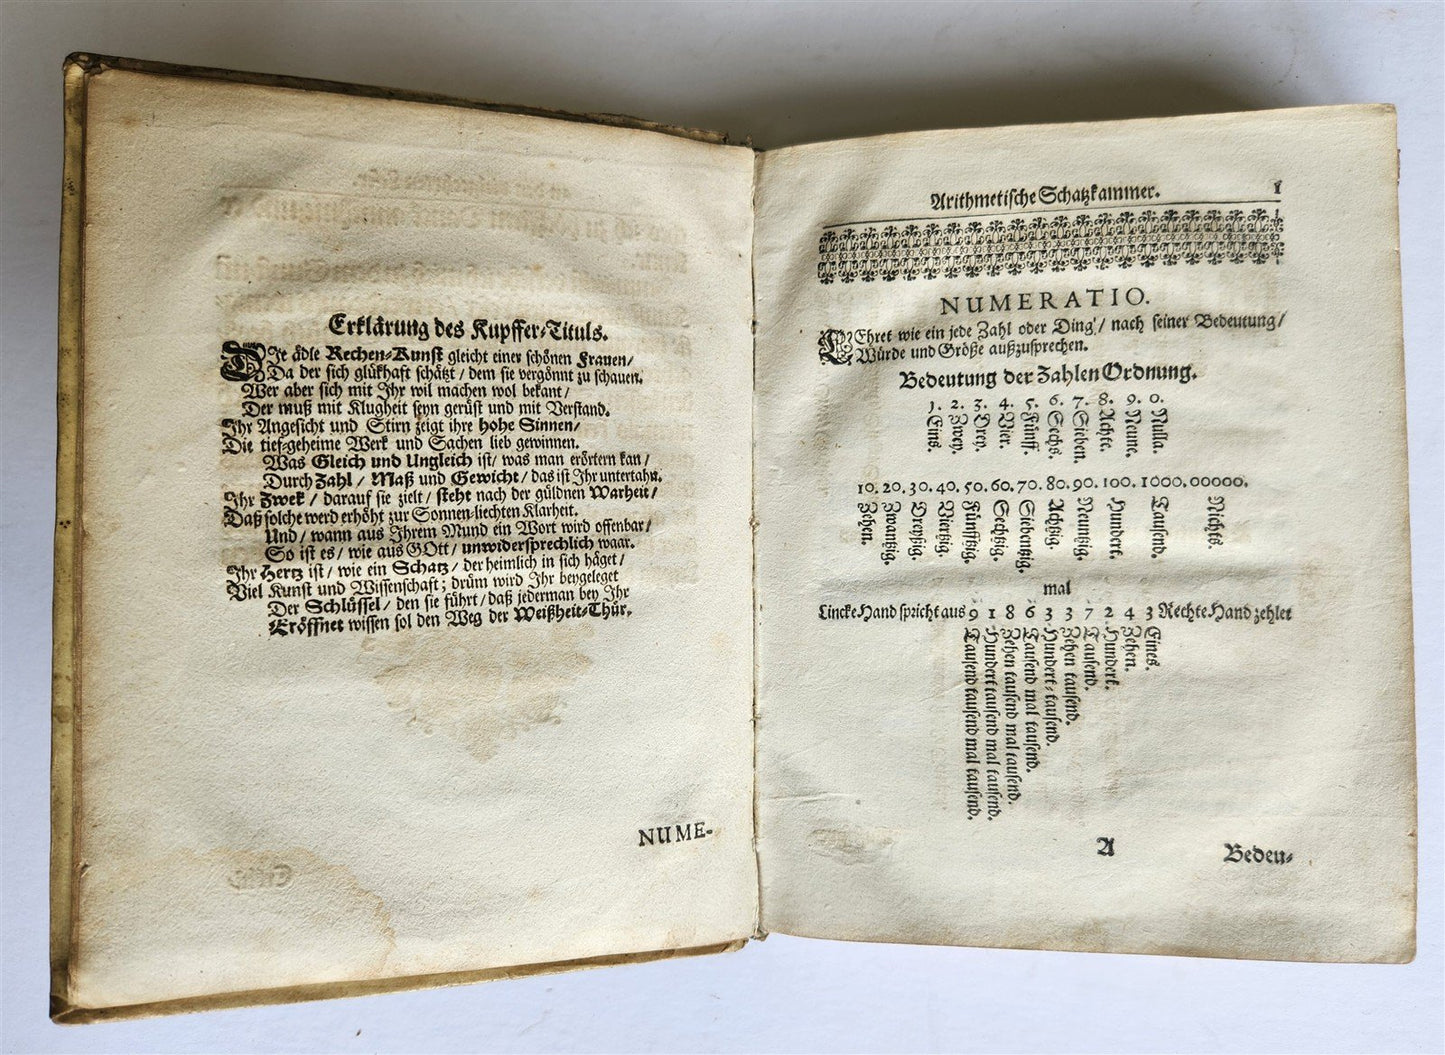 Erklärung des Kupffer-Tituls.
DIe ädle Rechen-Kunst gleicht einer schönen Frauen/
Da der sich glükhaft schätzt/ dem sie vergönnt zu schauen.
Wer aber sich mit Ihr wil machen wol bekant/
Der muß mit Klugheit seyn gerüst und mit Verstand.
Ihr Angesicht und Stirn zeigt ihre hohe Sinnen/
Die tief-geheime Werk und Sachen lieb gewinnen.
Was Gleich und Ungleich ist/ was man erörtern kan/
Durch Zahl/ Maß und Gewicht/ das ist Ihr unterthan.
Ihr Zwek/ darauf sie zielt/ steht nach der güldnen Warheit/
Daß solche werd erhöht zur Sonnen-liechten Klarheit.
Und/ wann aus Ihrem Mund ein Wort wird offenbar/
So ist es/ wie aus GOtt/ unwidersprechlich waar.
Ihr Hertz ist/ wie ein Schatz/ der heimlich in sich häget/
Viel Kunst und Wissenschaft; drüm wird Ihr beygeleget
Der Schlüssel/ den sie führt/ daß jederman bey Ihr
Eröffnet wissen sol den Weg der Weißheit-Thür.
NUME-
Arithmetische Schatzkammer. 1
NUMERATIO.
LEhret wie ein jede Zahl oder Ding/ nach seiner Bedeutung/
Würde und Größe außzusprechen.
Bedeutung der Zahlen Ordnung.
1. 2. 3. 4. 5. 6. 7. 8. 9. 0.
Eins. Zwey. Drey. Vier. Fünff. Sechs. Sieben. Achte. Neune. Nulla.
10. 20. 30. 40. 50. 60. 70. 80. 90. 100. 1000. 00000.
Zehen. Zwantzig. Dreyßig. Viertzig. Fünfftzig. Sechtzig. Siebentzig. Achtzig. Neuntzig. Hundert. Tausend. Nichts.
mal
Lincke Hand spricht aus 9 1 8 6 3 3 7 2 4 3 Rechte Hand zehlet
Tausend tausend mal tausend.
Hundert tausend mal tausend.
Zehen tausend mal tausend.
Tausend mal tausend.
Hundert-tausend.
Zehen tausend.
Tausend.
Hundert.
Zehen.
Eines.
A
Bedeu-